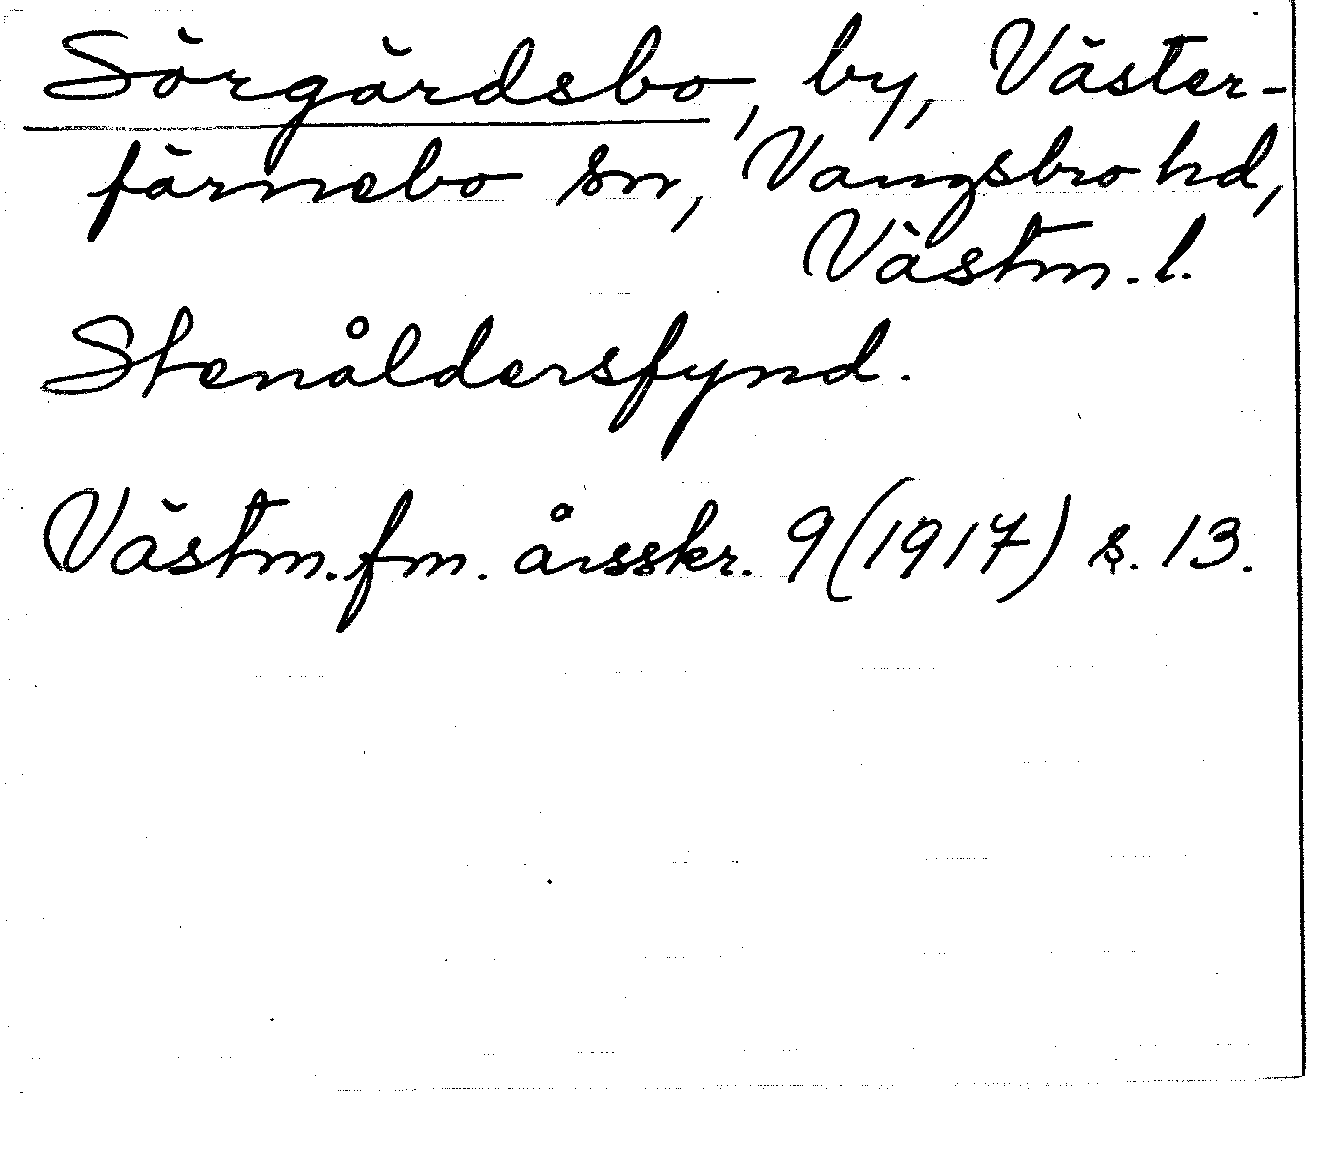 Sörgärdsbo, by, Väster-
färnebo sn, Vangsbro hd,
Västm. l.
Stenåldersfynd.
Västm. fm. årsskr. 9 (1917) s. 13.